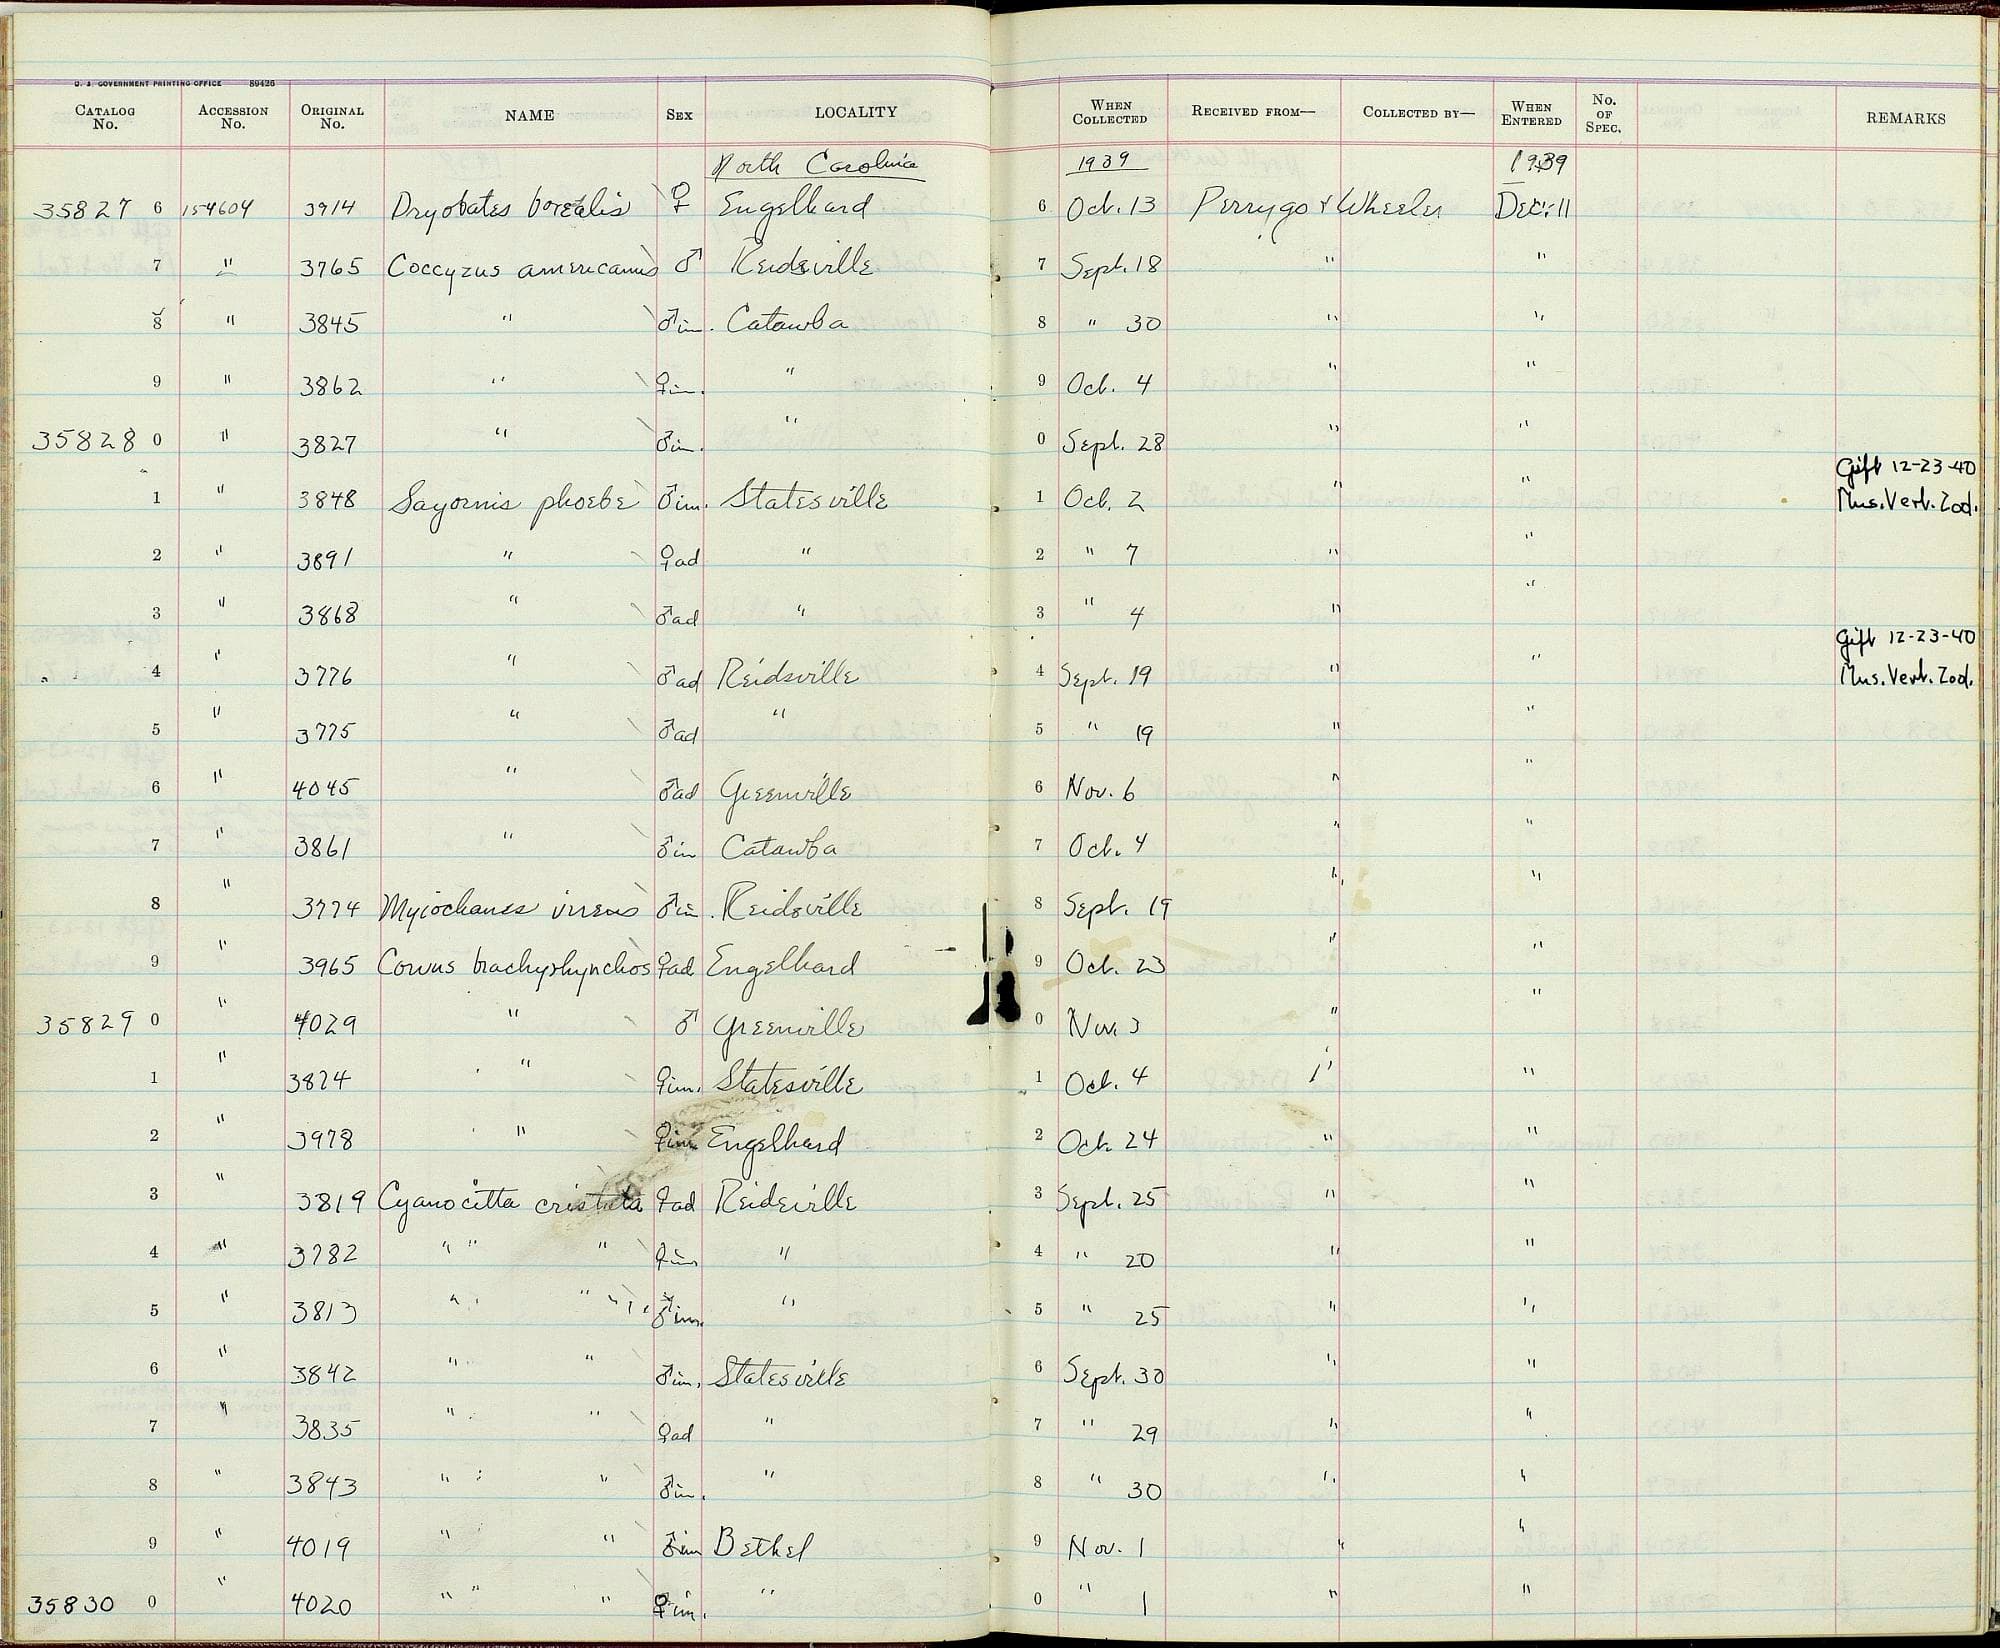 U. S. GOVERNMENT PRINTING OFFICE 89426
CATALOG No. ACCESSION No. ORIGINAL No. NAME SEX LOCALITY WHEN COLLECTED RECEIVED FROM— COLLECTED BY— WHEN ENTERED No. OF SPEC. REMARKS
North Carolina 1939 1939
35827 6 154604 3914 Dryobates borealis ♀ Engelhard 6 Oct. 13 Perrygo & Wheeler Dec. 11
7 " 3765 Coccyzus americanus ♂ Reidsville 7 Sept. 18 " "
8 " 3845 " ♂ im. Catawba 8 " 30 " "
9 " 3862 " ♀ im. " 9 Oct. 4 " "
35828 0 " 3827 " ♂ im. " 0 Sept. 28 " "
Gift 12-23-40
1 " 3848 Sayornis phoebe ♂ im. Statesville 1 Oct. 2 " " Mus. Vert. Zool.
2 " 3891 " ♀ ad " 2 " 7 " "
3 " 3868 " ♂ ad " 3 " 4 " "
Gift 12-23-40
4 " 3776 " ♂ ad Reidsville 4 Sept. 19 " " Mus. Vert. Zool.
5 " 3775 " ♂ ad " 5 " 19 " "
6 " 4045 " ♂ ad Greenville 6 Nov. 6 " "
7 " 3861 " ♂ im Catawba 7 Oct. 4 " "
8 " 3774 Myiochanes virens ♂ im. Reidsville 8 Sept. 19 " "
9 " 3965 Corvus brachyrhynchos ♀ ad Engelhard 9 Oct. 23 " "
35829 0 " 4029 " ♂ Greenville 0 Nov. 3 " "
1 " 3874 " ♀ im. Statesville 1 Oct. 4 " "
2 " 3978 " ♀ im. Engelhard 2 Oct. 24 " "
3 " 3819 Cyanocitta cristata ♀ ad Reidsville 3 Sept. 25 " "
4 " 3782 " " ♀ im " 4 " 20 " "
5 " 3813 " " ♂ im. " 5 " 25 " "
6 " 3842 " " ♂ im. Statesville 6 Sept. 30 " "
7 " 3835 " " ♀ ad " 7 " 29 " "
8 " 3843 " " ♂ im. " 8 " 30 " "
9 " 4019 " " ♂ im Bethel 9 Nov. 1 " "
35830 0 " 4020 " " ♀ im. " 0 " 1 " "